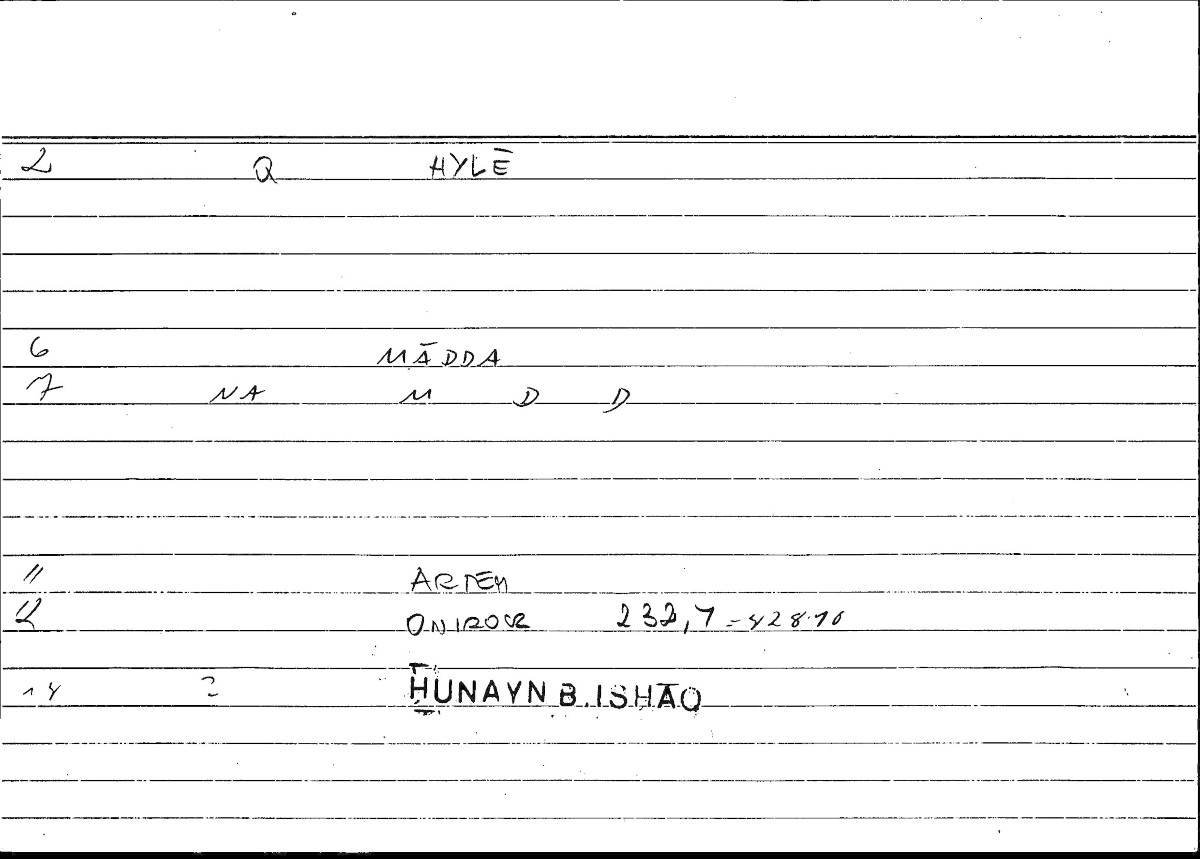 2 Q HYLĒ
6 MĀDDA
7 NA M D D
11 ARTEM
12 ONIROCR 232,7 = 428.10
14 2 HUNAYN B. ISHĀQ